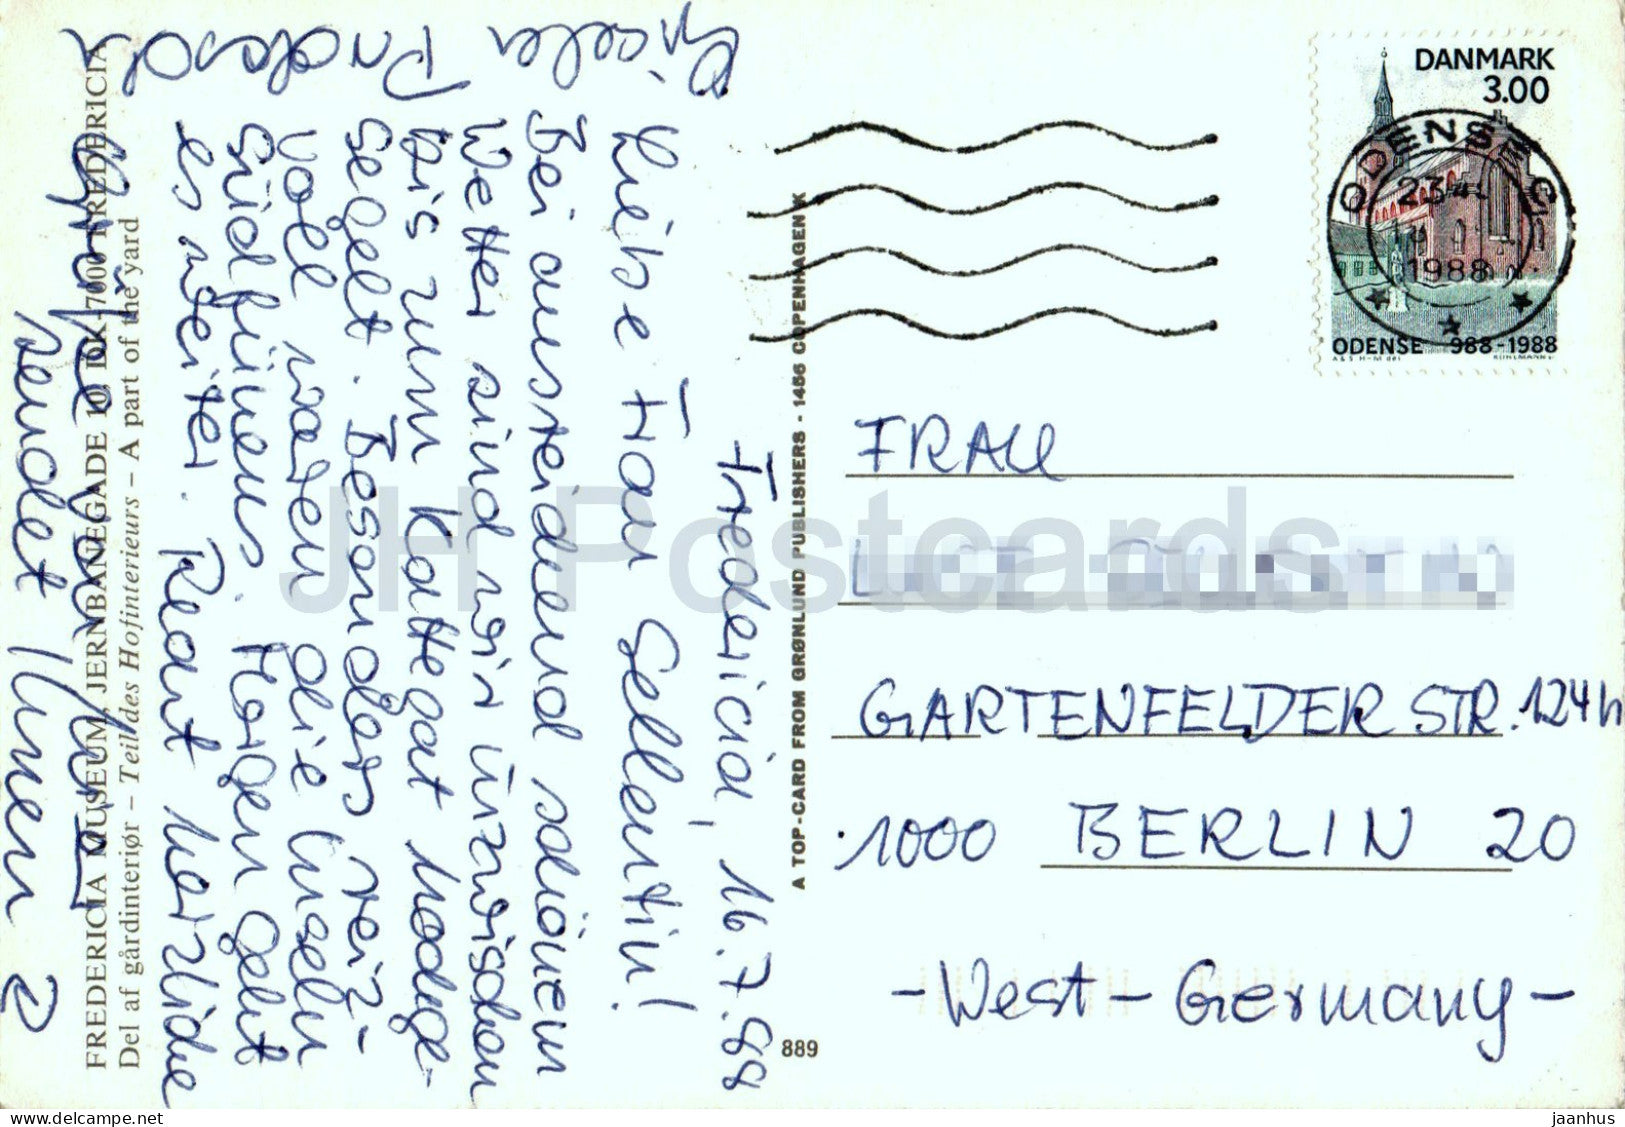 Fredericia, 16.7.88
Liebe Frau Sellentin!
Bei ausreichend schönem
Wetter sind wir inzwischen
bis zum Kattegat hochge-
segelt. Besonders reiz-
voll waren die Inseln
Südfünens. Morgen geht
es weiter. Recht herzliche
Grüße und
sendet Ihnen
FREDERICIA MUSEUM, JERNBANEGADE 10, DK-7000 FREDERICIA
Del af gårdinteriør – Teil des Hofinterieurs – A part of the yard
A TOP-CARD FROM GRØNLUND PUBLISHERS - 1466 COPENHAGEN K
889
DANMARK
3.00
ODENSE C
23
1988
ODENSE 988-1988
FRAU
GARTENFELDER STR. 124h
1000 BERLIN 20
- West - Germany -
JH Postcards
www.delcampe.net
jaanhus